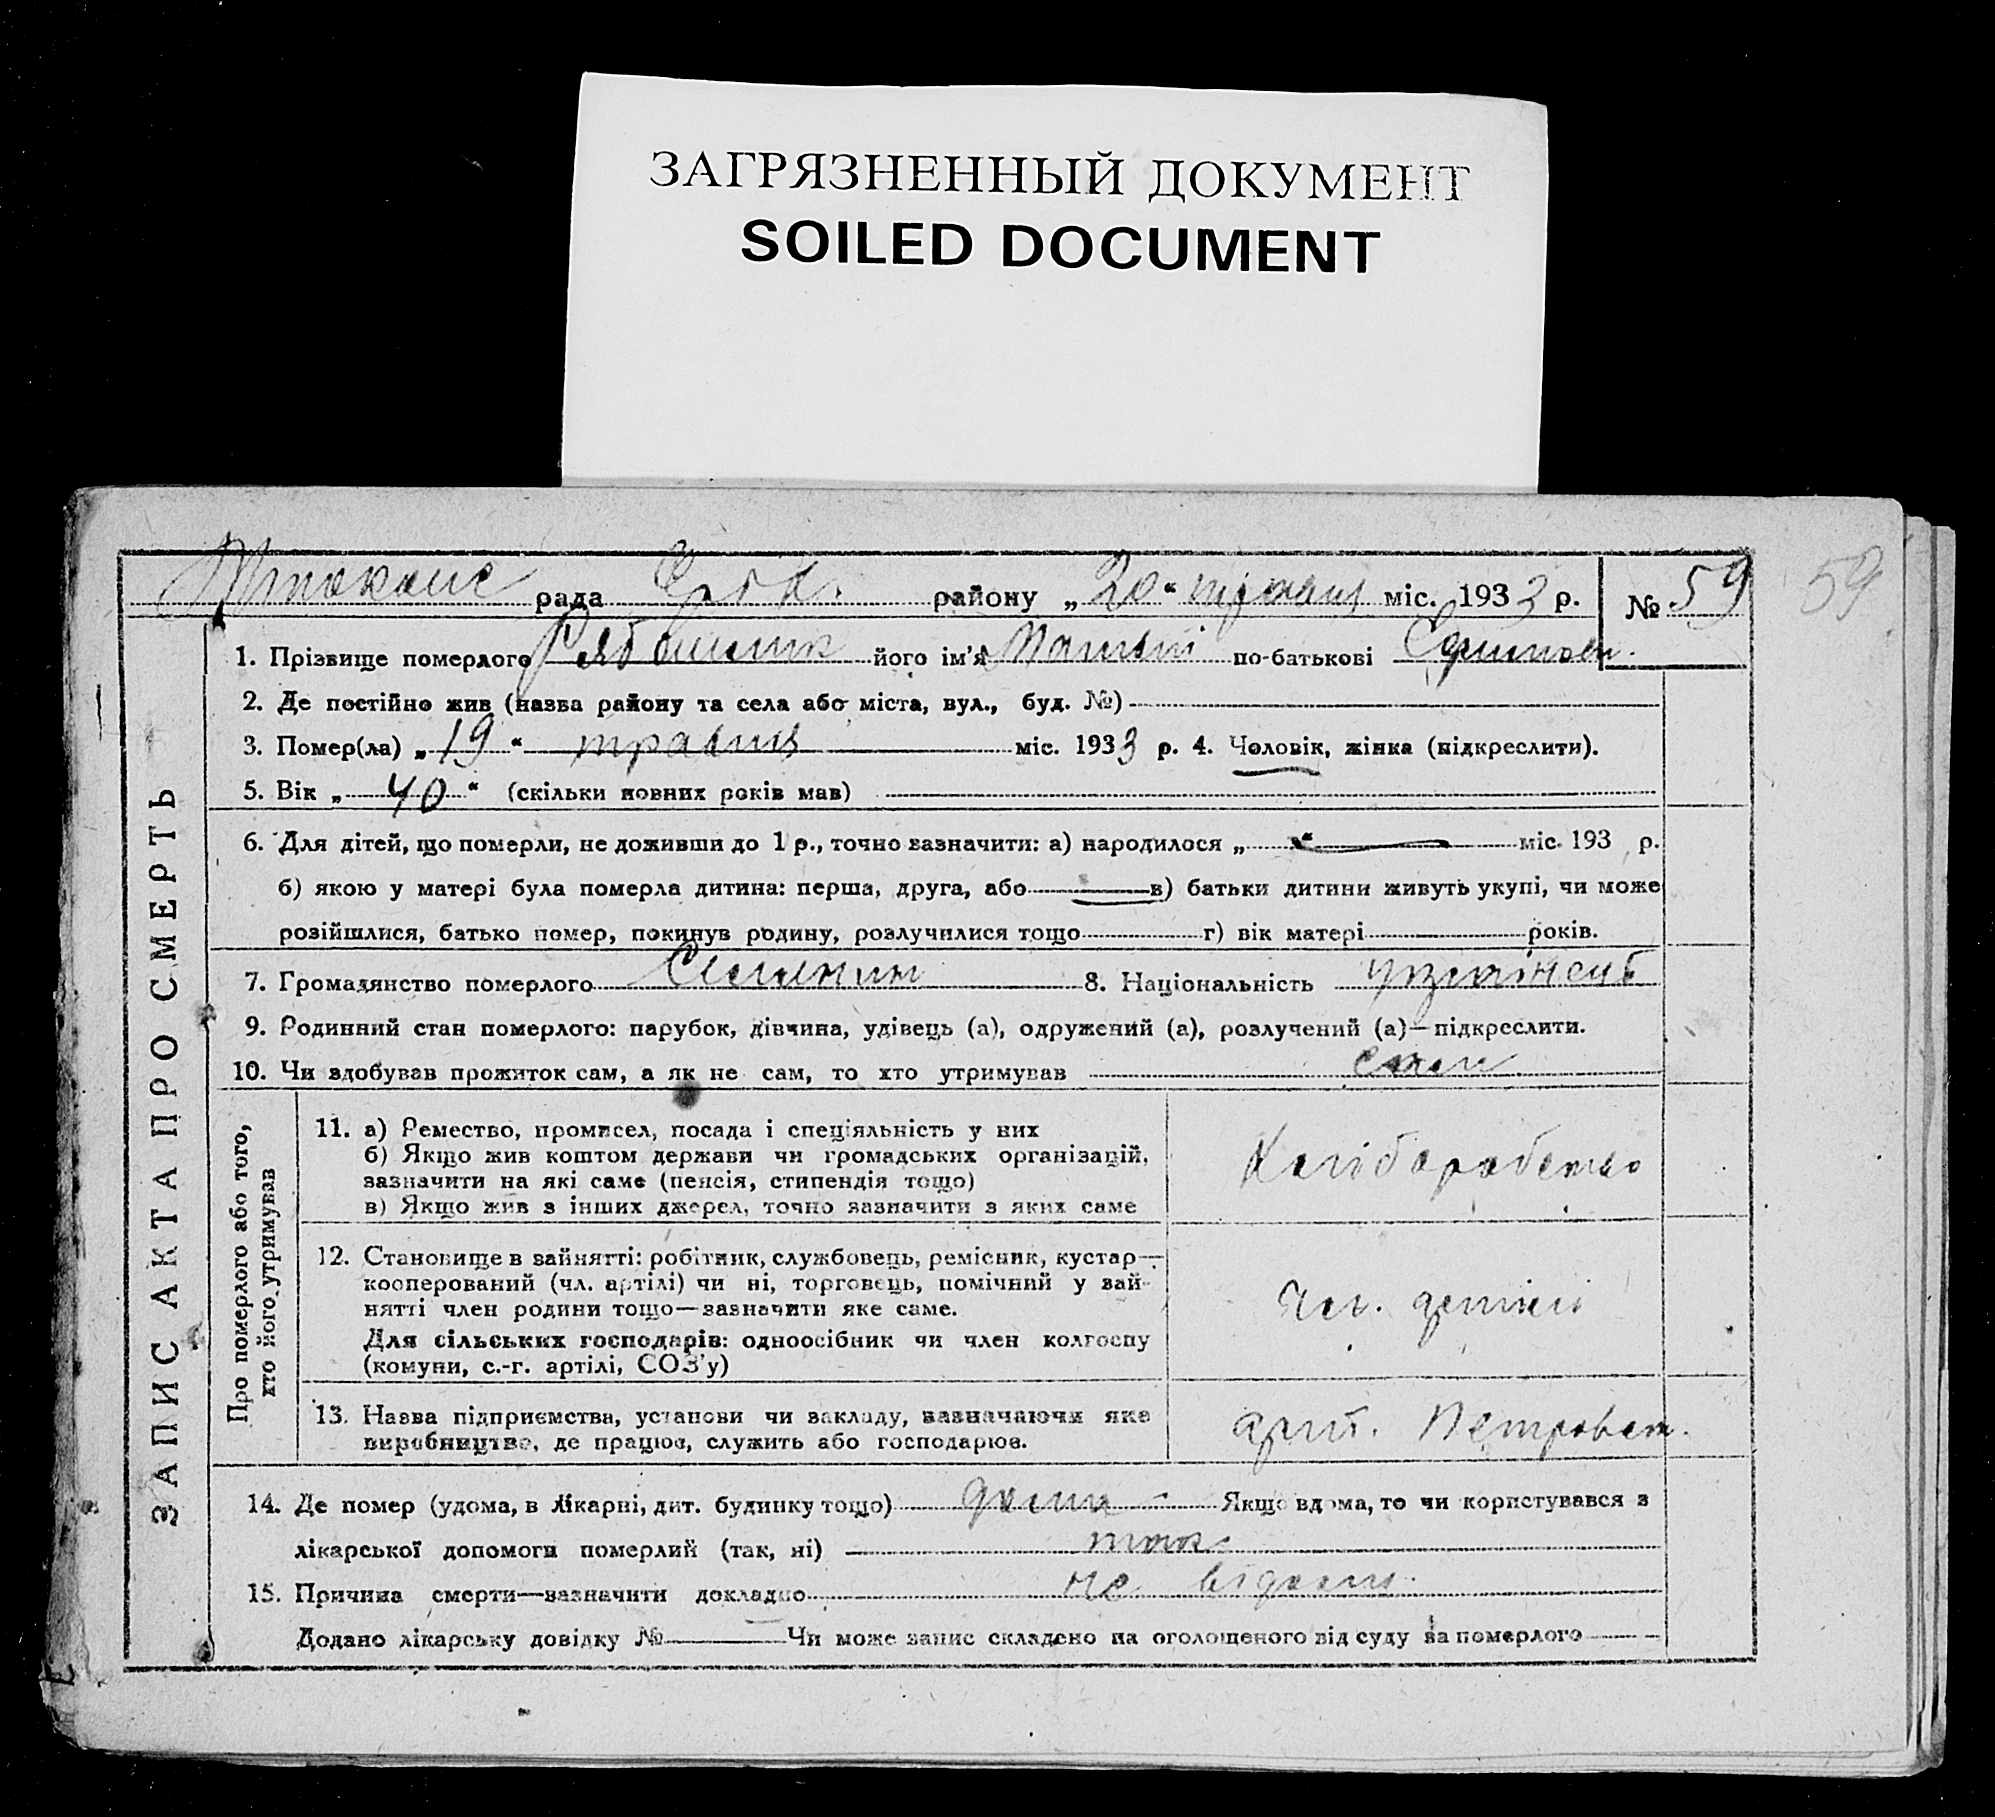 ЗАГРЯЗНЕННЫЙ ДОКУМЕНТ
SOILED DOCUMENT
рада району „20“ травня міс. 1933 р. № 59 59
1. Прізвище померлого його ім'я по-батькові
2. Де постійно жив (назва району та села або міста, вул., буд. №)
3. Помер(ла) „19“ травня міс. 1933 р. 4. Чоловік, жінка (підкреслити).
5. Вік „40“ (скільки повних років мав)
6. Для дітей, що померли, не доживши до 1 р., точно зазначити: а) народилося „ “ міс. 193 р.
б) якою у матері була померла дитина: перша, друга, або в) батьки дитини живуть укупі, чи може
розійшлися, батько помер, покинув родину, розлучилися тощо г) вік матері років.
7. Громадянство померлого Селянин 8. Національність українець
9. Родинний стан померлого: парубок, дівчина, удівець (а), одружений (а), розлучений (а)—підкреслити.
10. Чи здобував прожиток сам, а як не сам, то хто утримував сам
ЗАПИС АКТА ПРО СМЕРТЬ
Про померлого або того,
хто його утримував
11. а) Ремество, промисел, посада і спеціяльність у них
б) Якщо жив коштом держави чи громадських організацій,
зазначити на які саме (пенсія, стипендія тощо)
в) Якщо жив з інших джерел, точно зазначити з яких саме
Хліборобство
12. Становище в зайнятті: робітник, службовець, ремісник, кустар—
кооперований (чл. артілі) чи ні, торговець, помічний у зай-
нятті член родини тощо—зазначити яке саме.
Для сільських господарів: одноосібник чи член колгоспу
(комуни, с.-г. артілі, СОЗ'у)
Чл. артілі
13. Назва підприємства, установи чи закладу, зазначаючи яке
виробництво, де працює, служить або господарює.
арт. Петровск.
14. Де помер (удома, в лікарні, дит. будинку тощо) дома Якщо вдома, то чи користувався з
лікарської допомоги померлий (так, ні) так
15. Причина смерти—зазначити докладно не відомо
Додано лікарську довідку № Чи може запис складено на оголошеного від суду за померлого